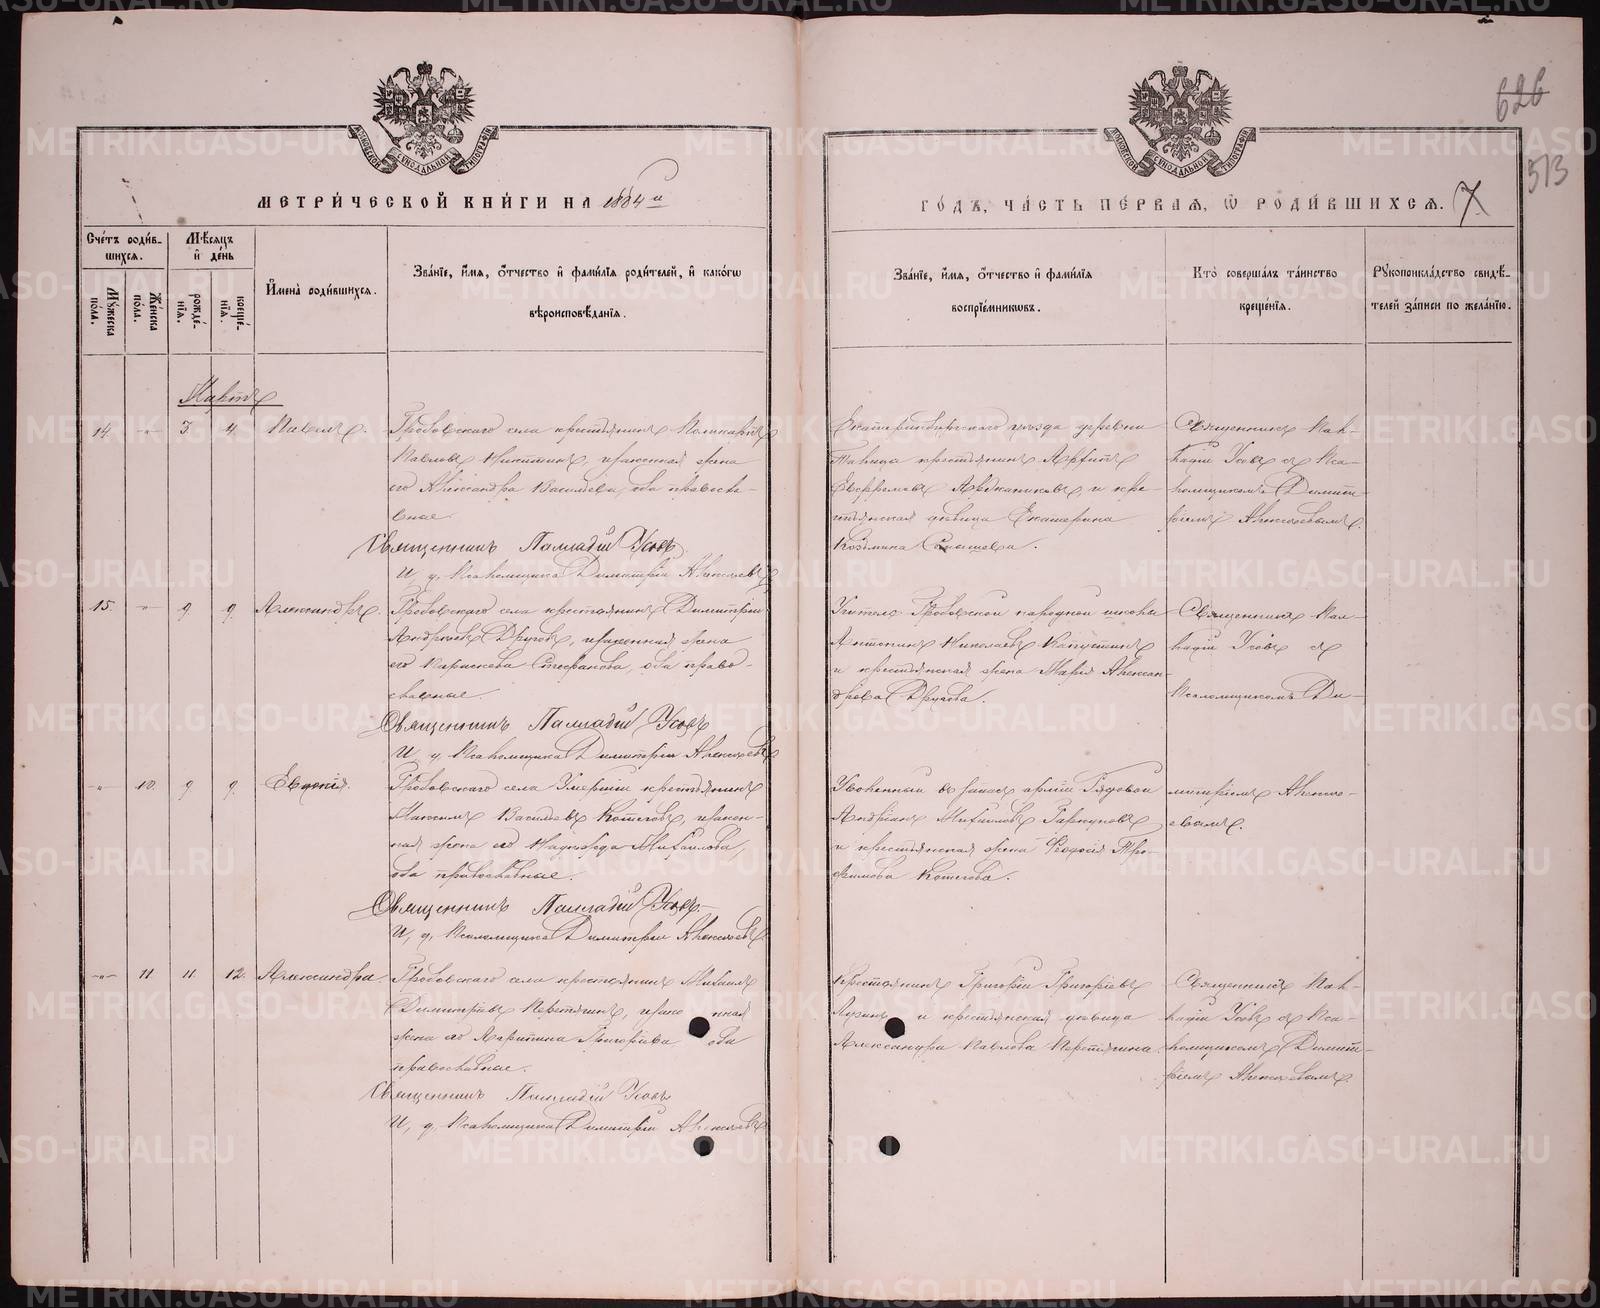 626
513
МОСКОВСКОЙ СѴНОДАЛЬНОЙ ТИПОГРАФІИ
МОСКОВСКОЙ СѴНОДАЛЬНОЙ ТИПОГРАФІИ
МЕТРИ́ЧЕСКОЙ КНИ́ГИ НА 1884й
ГО́ДЪ, ЧА́СТЬ ПЕ́РВАЯ, Ѡ РОДИ́ВШИХСЯ. 7
Сче́тъ роди́в-
шихся.
Мꙋ́жеска по́ла.
Же́нска по́ла.
Мѣ́сяцъ
и҆ де́нь
рожде́-
нїя.
креще́-
нїя.
И҆мена̀ роди́вшихся.
Зва́нїе, и҆́мя, ѻ҆́тчество и҆ фами́лїя роди́телей, и҆ како́гѡ
вѣроисповѣ́данїя.
Зва́нїе, и҆́мя, ѻ҆́тчество и҆ фами́лїя
воспрїе́мникѡвъ.
Кто̀ соверша́лъ та́инство
креще́нїя.
Рꙋкоприкла́дство свидѣ́-
телей за́писи по жела́нїю.
Мартъ
14. -„- 3 4. Павелъ.
Гробовскаго села крестьянинъ Поликарпъ
Павловъ Никитинъ, законная жена
его Александра Васильева, оба православ-
ные.
Священникъ Палладій Усовъ
И. д. Псаломщика Димитрій Алексѣевъ
Екатеринбургскаго уѣзда деревни
крестьянинъ
Ефремовъ и кре-
стьянская дѣвица Екатерина
Козьмина
Священникъ Пал-
ладій Усовъ съ Пса-
ломщикомъ Димит-
ріемъ Алексѣевымъ.
15. -„- 9 9. Александръ.
Гробовскаго села крестьянинъ Димитрій
Андреевъ Друговъ, законная жена
его Параскева Стефанова, оба право-
славные.
Священникъ Палладій Усовъ
И. д. Псаломщика Димитрій Алексѣевъ
Учитель Гробовской народной школы
Антонинъ Николаевъ Капустинъ
и крестьянская жена Марія Алексан-
дрова Другова.
Священникъ Пал-
ладій Усовъ съ
Псаломщикомъ Ди-
-„- 10. 9 9. Евдокія.
Гробовскаго села Умершій крестьянинъ
Максимъ Васильевъ Кошеговъ, закон-
ная жена его Надежда Михаилова,
оба православные.
Священникъ Палладій Усовъ
И. д. Псаломщика Димитрій Алексѣевъ
Уволенный въ запасъ арміи Рядовой
Андріанъ Михаиловъ
и крестьянская жена Ѳеодосія Тро-
фимова Кошегова.
митріемъ Алексѣ-
евымъ.
-„- 11 11 12. Александра.
Гробовскаго села крестьянинъ Михаилъ
Димитріевъ Перетягинъ, зако нная
жена его Агрипина Григорьева оба
православные.
Священникъ Палладій Усовъ
И. д. Псаломщика Димитрій Алексѣевъ
Крестьянинъ Григорій Григорьевъ
и крестьянская дѣвица
Александра Павлова Перетягина
Священникъ Пал-
ладій Усовъ съ Пса-
ломщикомъ Димит-
ріемъ Алексѣевымъ.
METRIKI.GASO-URAL.RU